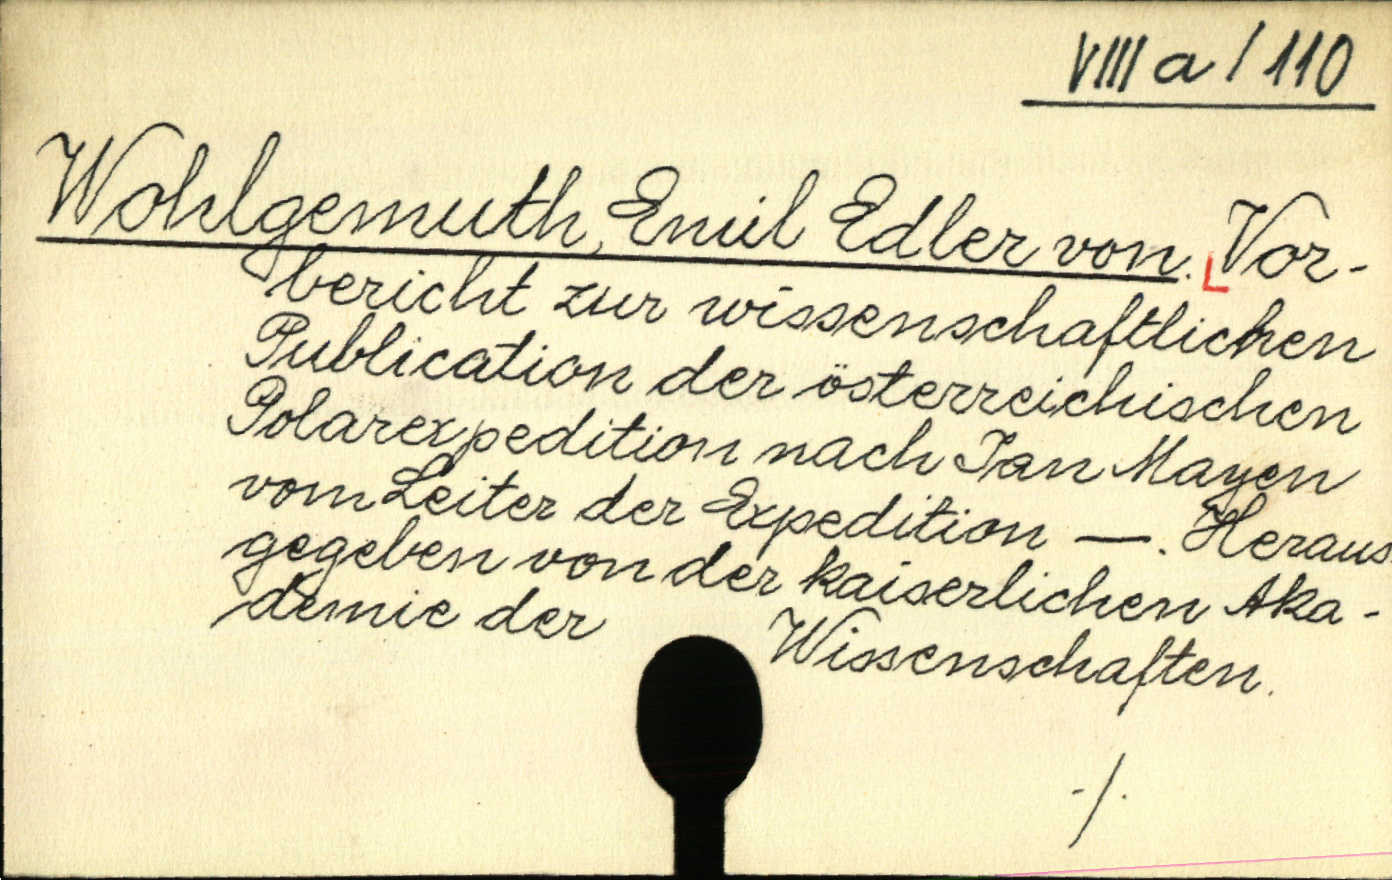 VIII a / 110
Wohlgemuth, Emil Edler von. Vor-
bericht zur wissenschaftlichen
Publication der österreichischen
Polarexpedition nach Jan Mayen
vom Leiter der Expedition —. Heraus-
gegeben von der kaiserlichen Aka-
demie der Wissenschaften.
-/.